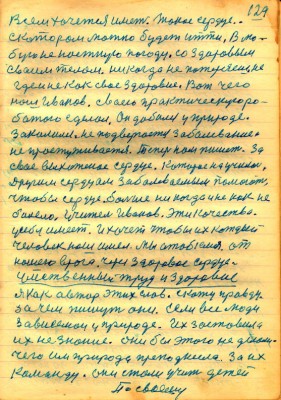 129
Всем хочется иметь такое сердце..
с которым можно будет итти, в лю-
бую не настную погоду, со здоровым
своим телом, никогда не потеряешь, не
где и не как свое здоровие. Вот чего
нам Иванов, своего практическую ро-
ботою сделал. Он добыл у природе.
Закалился, не подвергается заболеванию
не простуживается. Теперь нам пишет. За
свое сердце. Которое научил
другим сердцам заболевшим помогать,
чтобы сердце больше никогда не как не
болело, учитель Иванов. Эти качества
цели имеет. И хочет чтобы их каждый
человек нам имел. Мы отобьёмся, от
нашего врага, через здоровое сердце.
Умственный труд и здоровие
Я как автор этих слов. Скажу правду
за чем пишут они. Если все люди
зависемы у природе. Их заставила
их не знание. Они бы этого не делали.
чего им природа преподнесла. За их
команду. они стали учить детей
По своему